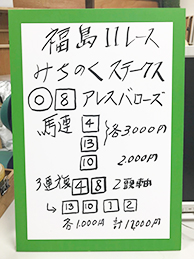 福島11レース
みちのくステークス
◎ 8 アレスバローズ
馬連 4
13 各3000円
10 2000円
3連複 4 8 2頭軸
↳ 13 10 1 2
各1,000円 計12000円